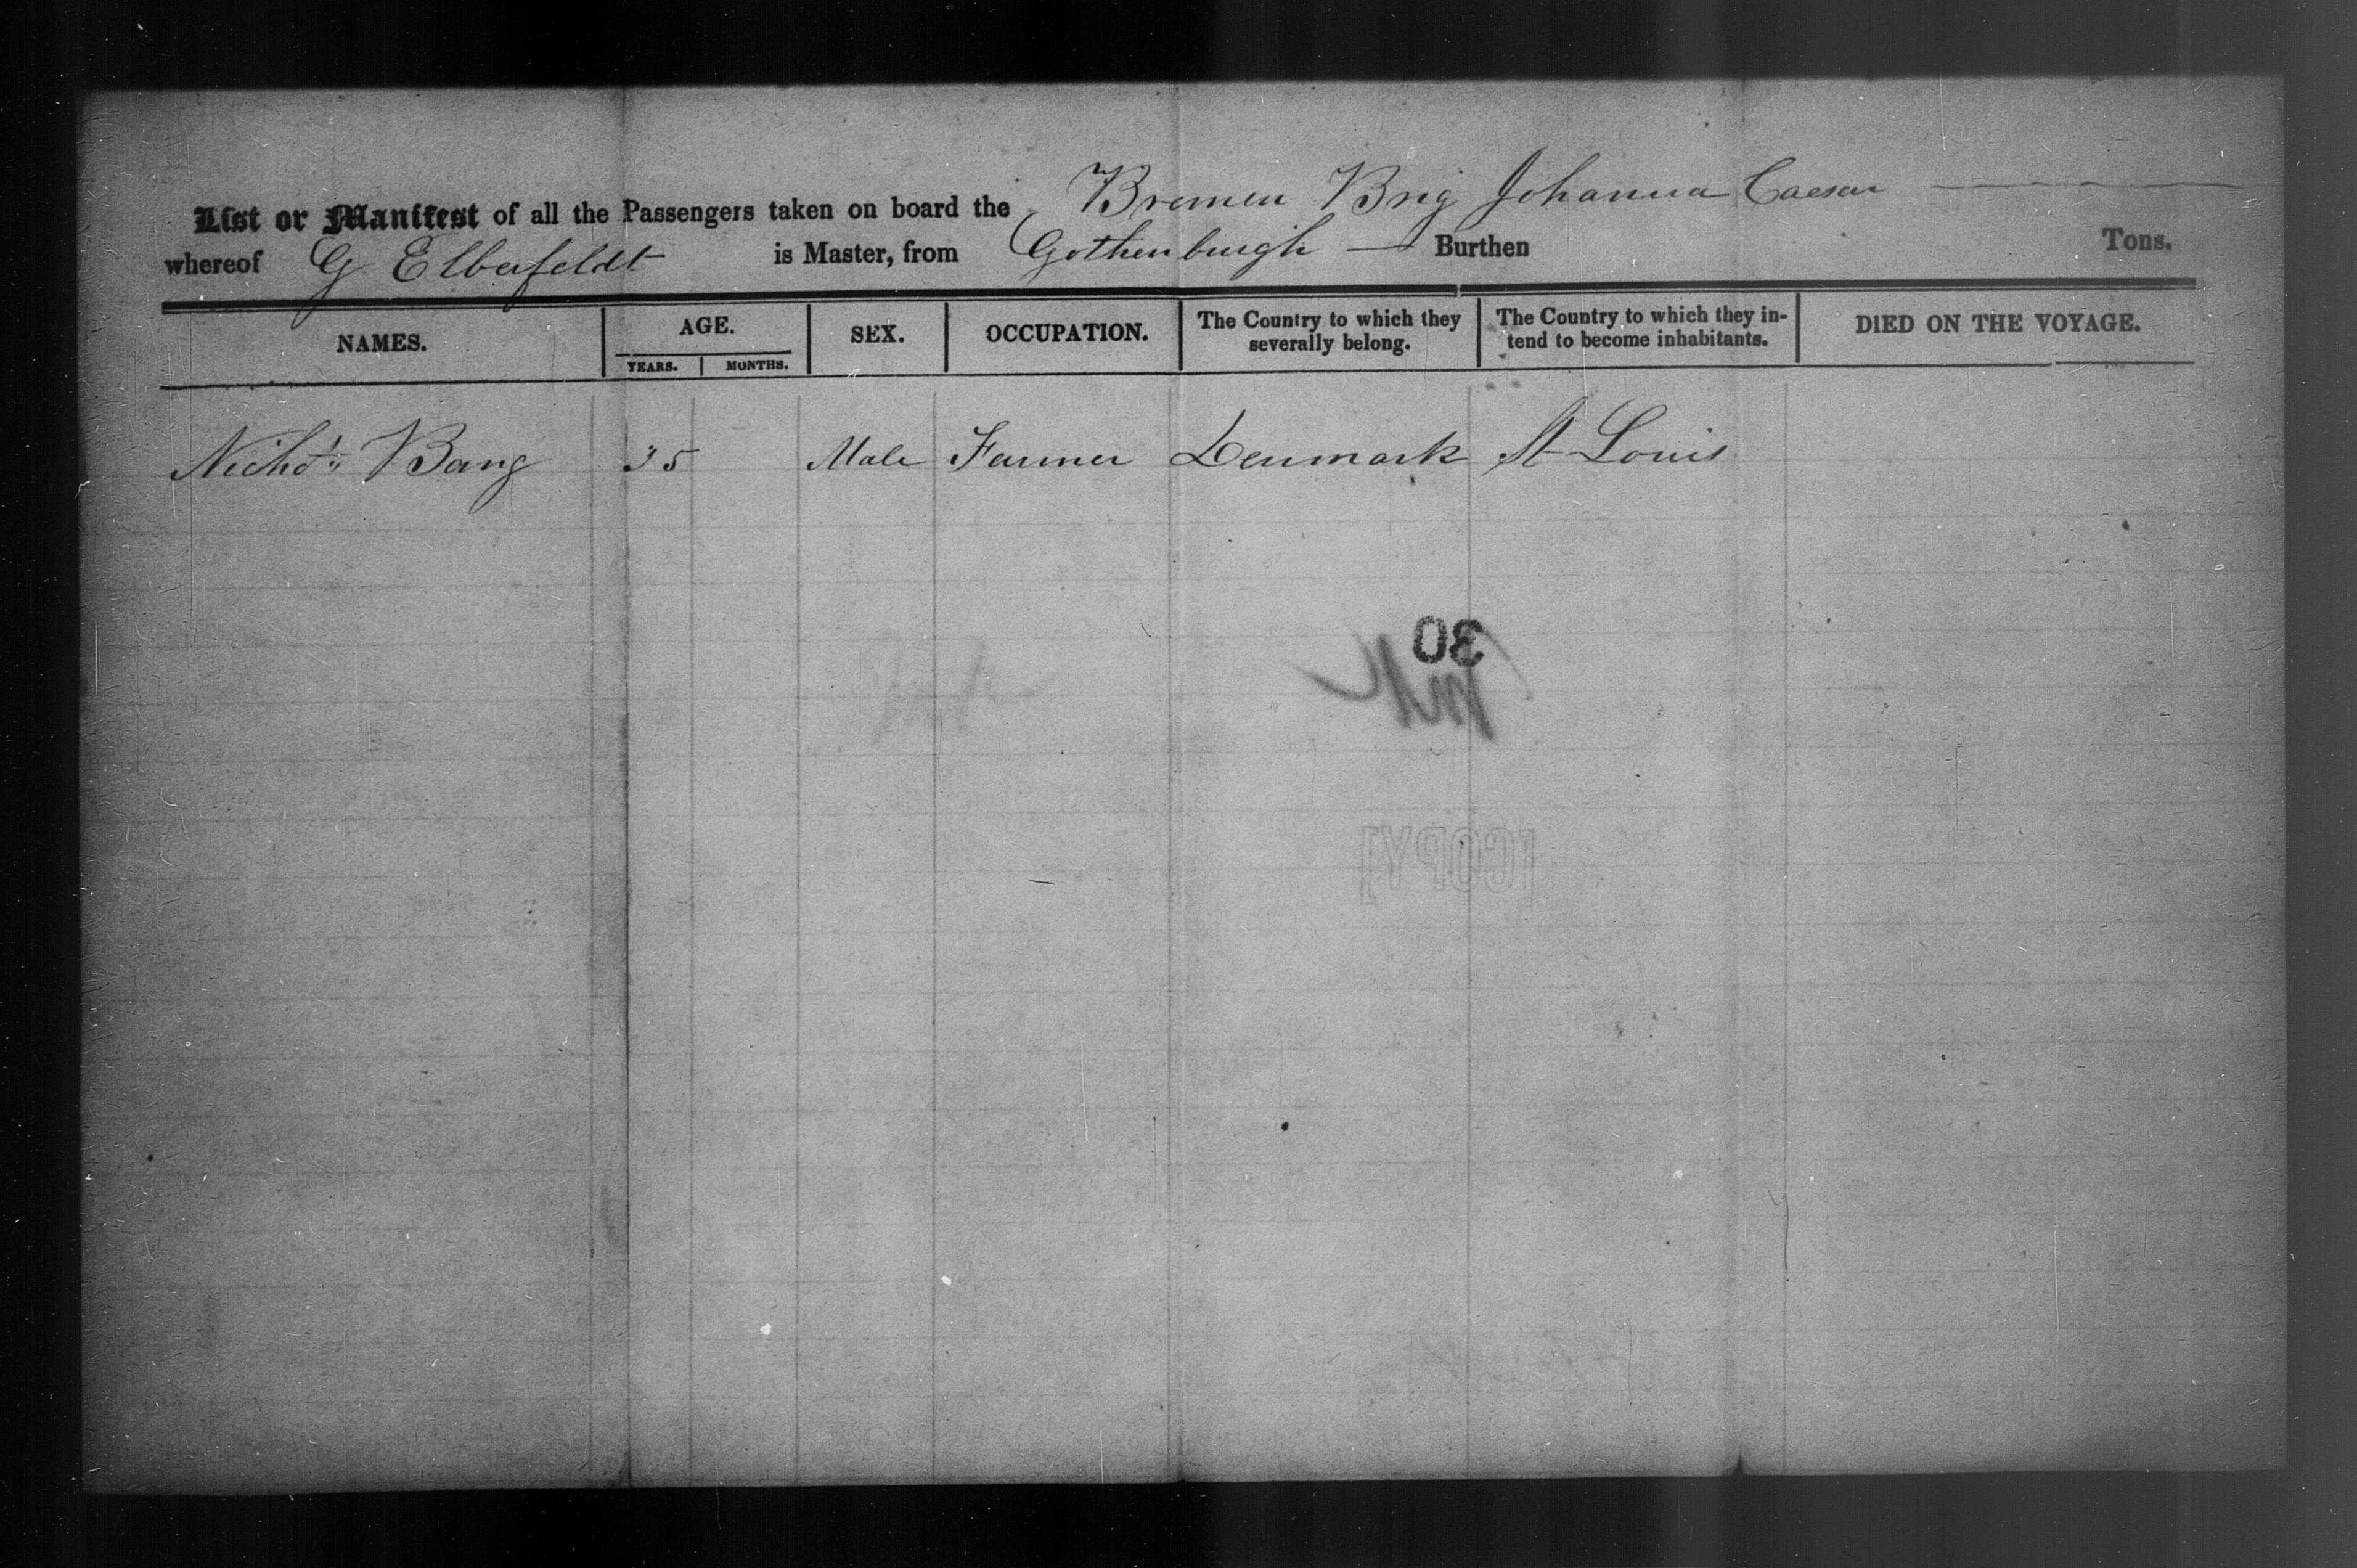 List or Manifest of all the Passengers taken on board the Bremen Brig Johanna Caesar
whereof G Elberfeldt is Master, from Gothenburgh — Burthen Tons.
NAMES. AGE. SEX. OCCUPATION. The Country to which they severally belong. The Country to which they in-tend to become inhabitants. DIED ON THE VOYAGE.
YEARS. MONTHS.
Bang 35 Male Farmer Denmark St Louis
30
[COPY]